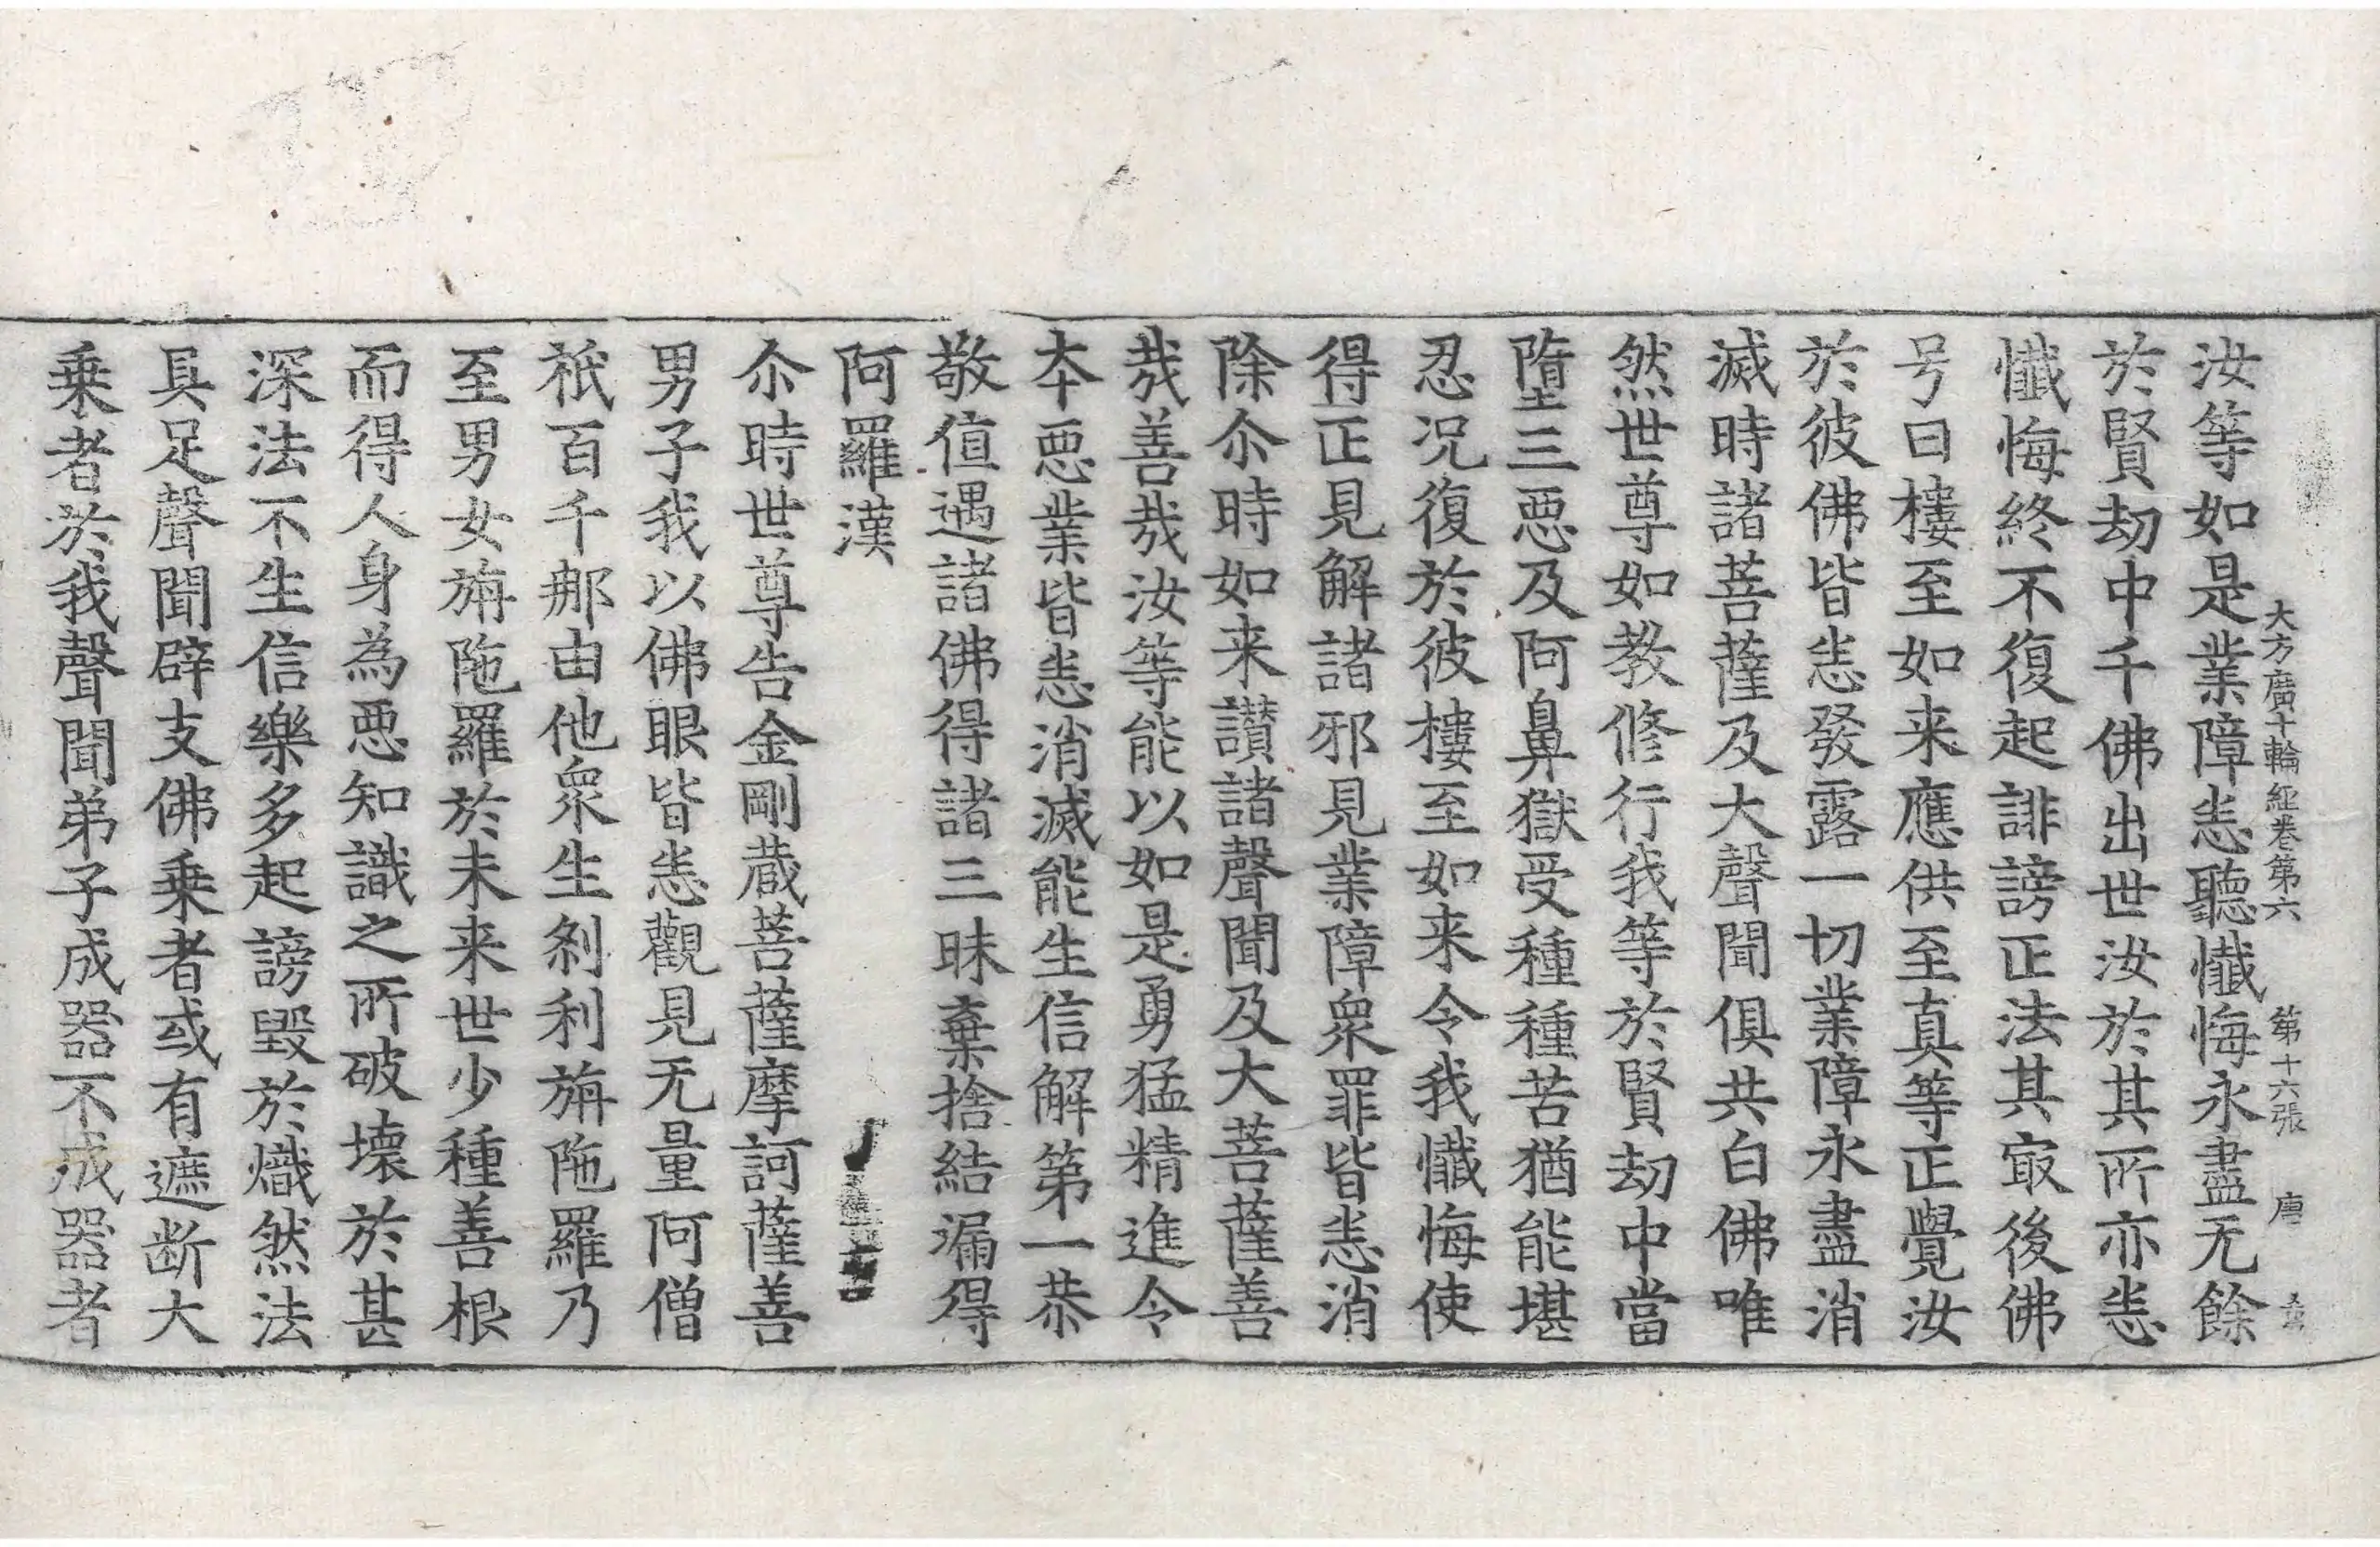 大方廣十輪經卷第六　第十六張　唐
汝等如是業障恙聽懺悔永盡无餘
於賢劫中千佛出世汝於其所亦恙
懺悔終不復起誹謗正法其㝡後佛
号曰樓至如来應供至真等正覺汝
於彼佛皆恙發露一切業障永盡消
滅時諸菩薩及大聲聞俱共白佛唯
然世尊如教修行我等於賢劫中當
墮三惡及阿鼻獄受種種苦猶能堪
忍况復於彼樓至如来令我懺悔使
得正見解諸邪見業障衆罪皆恙消
除尒時如来讃諸聲聞及大菩薩善
㢤善㢤汝等能以如是勇猛精進令
夲惡業皆恙消滅能生信解第一恭
敬值遇諸佛得諸三昧棄捨結漏得
阿羅漢
尒時世尊告金剛蔵菩薩摩訶薩善
男子我以佛眼皆恙觀見无量阿僧
祇百千那由他衆生剎利旃陁羅乃
至男女旃陁羅於未来世少種善根
而得人身為惡知識之所破壊於甚
深法不生信樂多起謗毀於熾然法
具足聲聞辟支佛乗者或有遮断大
乗者於我聲聞弟子成器不成器者